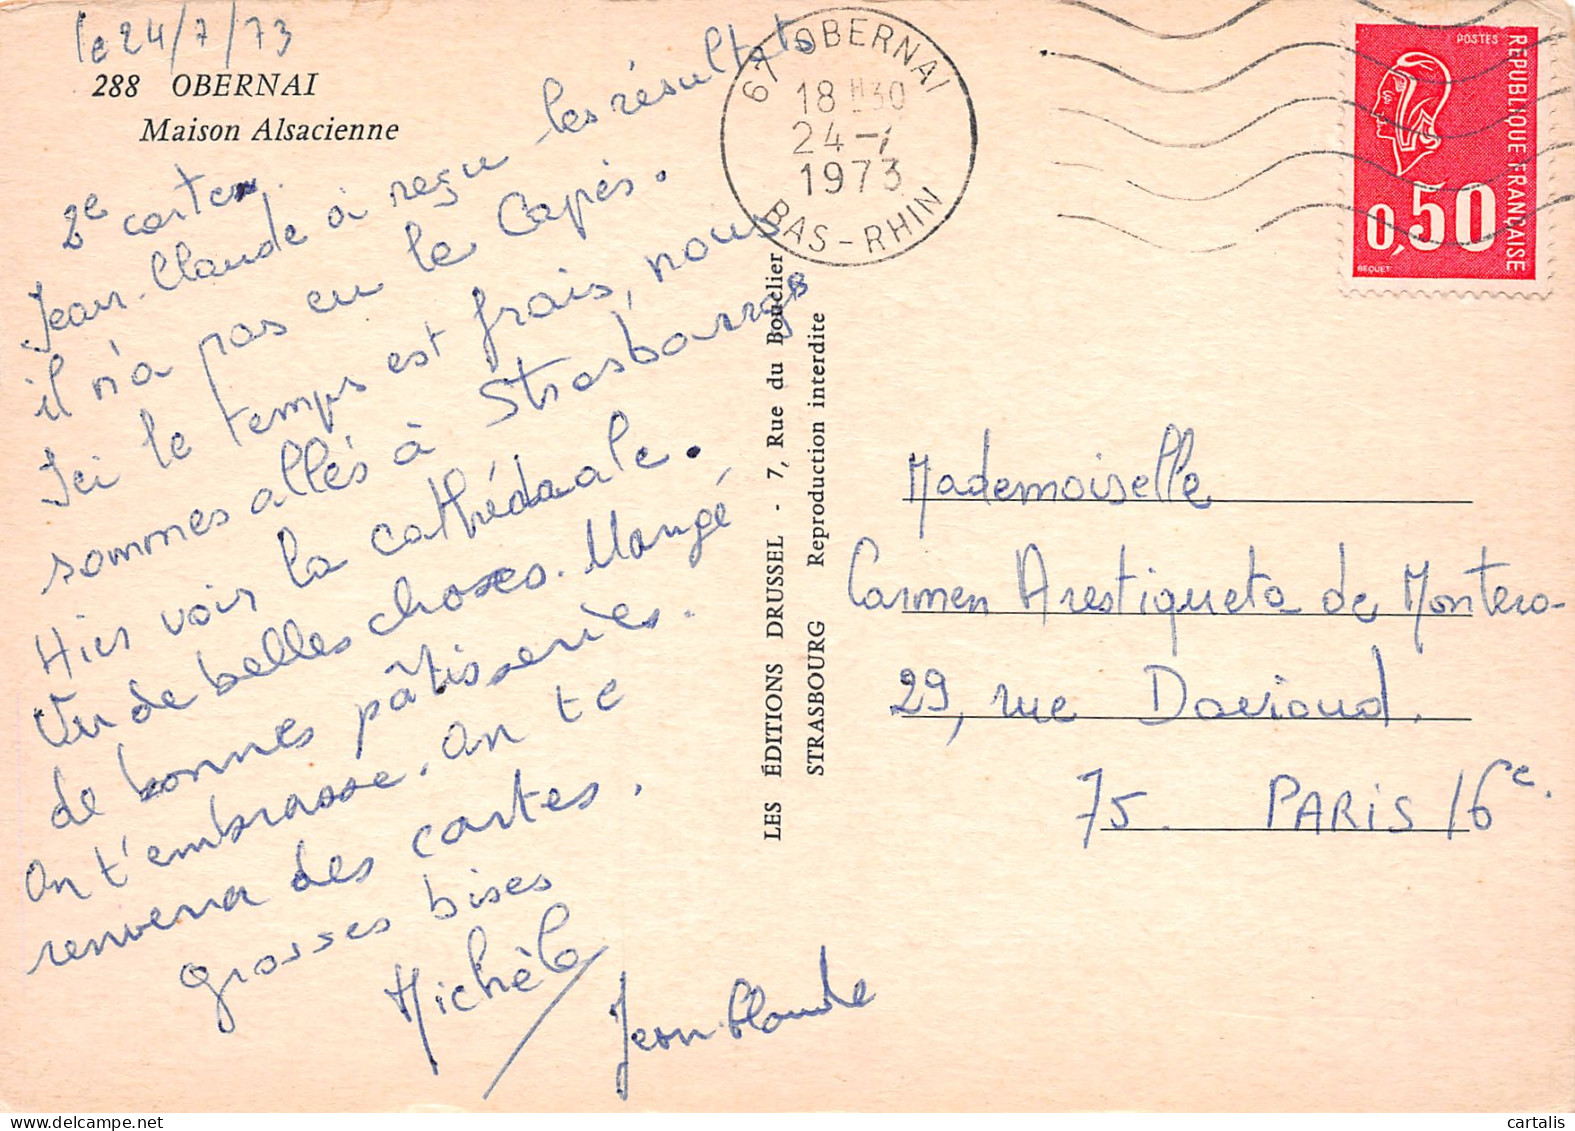 le 24/7/73
288 OBERNAI
Maison Alsacienne
2e carte.
Jean-Claude a reçu les résultats
il n'a pas eu le Capès.
Ici le temps est frais, nous
sommes allés à Strasbourg
Hier voir la cathédrale.
Vu de belles choses. Mangé
de bonnes pâtisseries.
On t'embrasse. On te
renverra des cartes.
grosses bises
Michèle
Jean-Claude
LES ÉDITIONS DRUSSEL - 7, Rue du Bouclier
STRASBOURG Reproduction interdite
67 OBERNAI
18 H30
24-7
1973
BAS-RHIN
POSTES
REPUBLIQUE FRANÇAISE
0,50
BEQUET
Mademoiselle
Carmen Arestigueta de Montero-
29, rue Davioud.
75. PARIS 16e.
cartalis
delcampe.net